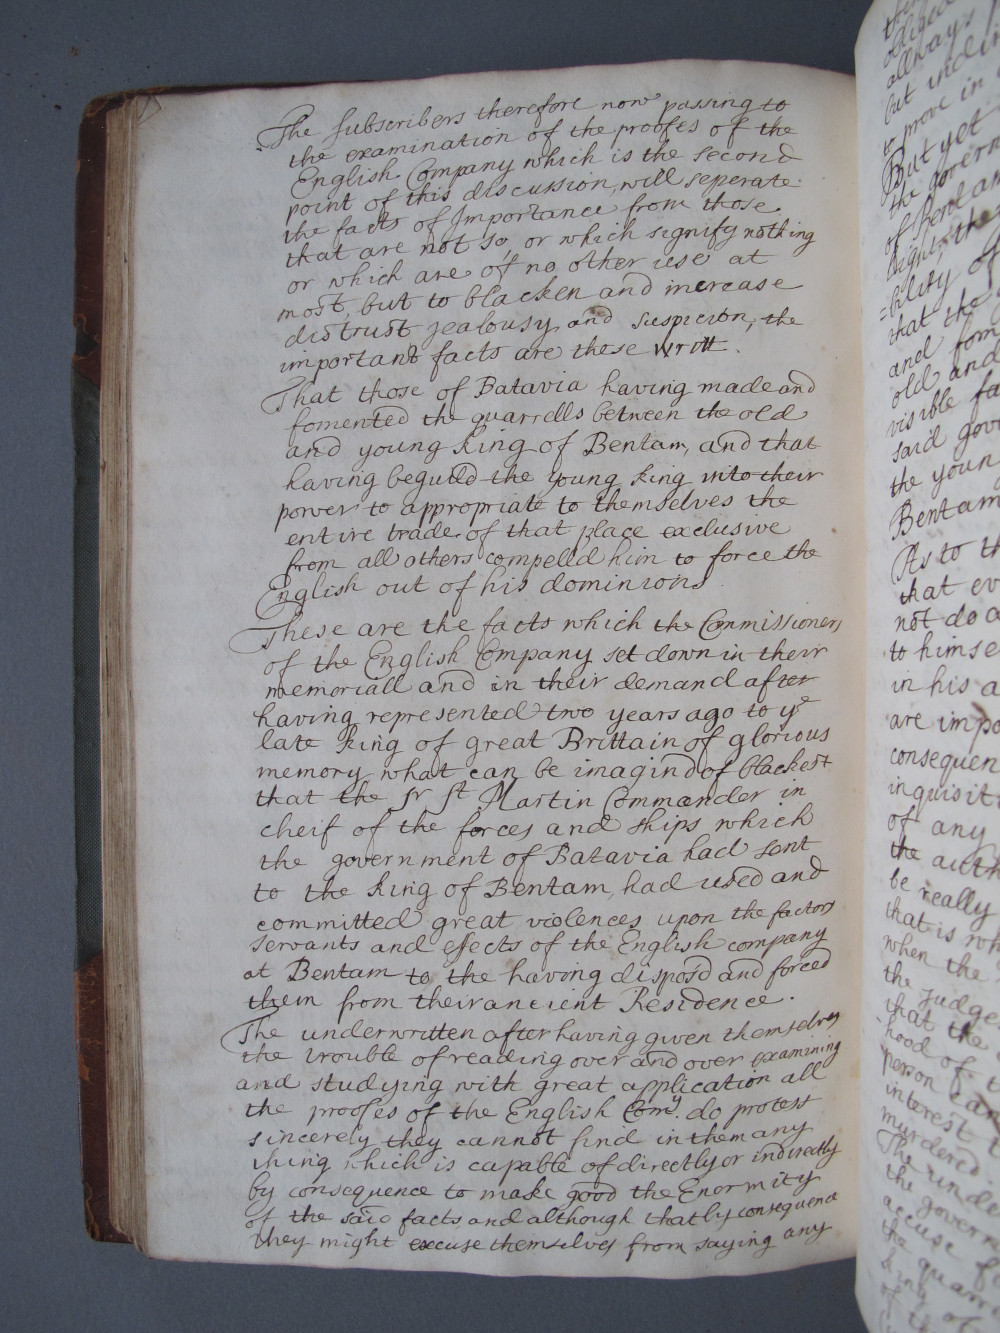 The subscribers therefore now passing to
the examination of the proofes of the
English Company which is the second
point of this discussion, will seperate
the facts of Importance from those
that are not so, or which signify nothing
or which are of no other use at
most, but to blacken and increase
distrust jealousy and suspicion, the
important facts are these writt.
That those of Batavia having made and
fomented the quarrells between the old
and young King of Bentam, and that
having beguild the young king into their
power to appropriate to themselves the
entire trade of that place exclusive
from all others compelld him to force the
English out of his dominions
These are the facts which the Commissioners
of the English Company set down in their
memoriall and in their demand after
having represented two years ago to ye
late King of great Brittain of glorious
memory what can be imagind of blackest
that the Sr St Martin Commander in
cheif of the forces and ships which
the government of Batavia had sent
to the King of Bentam, had used and
committed great violences upon the factors
servants and effects of the English company
at Bentam to the having disposd and forced
them from their ancient Residence.
The underwritten after having given themselves
the trouble of reading over and over examining
and studying with great application all
the proofes of the English Comy. do protest
sincerely they cannot find in them any
thing which is capable of directly or indirectly
by consequence to make good the Enormity
of the said facts, and although that by consequence
they might excuse themselves from saying any
allways
but
to prove in
But yet
the govern
of Bentam
Right, the
=bility of
that the
and fom
old and
visible fa
said gov
the youn
Bentam
As to th
that ev
not do a
to himse
in his a
are impo
consequen
inquisit
of any
the auth
be really
that is wh
when the
the judge
that the
hood of t
person can
interest
murdered.
The unde
the govern
accuse
the quarr
king of
of the